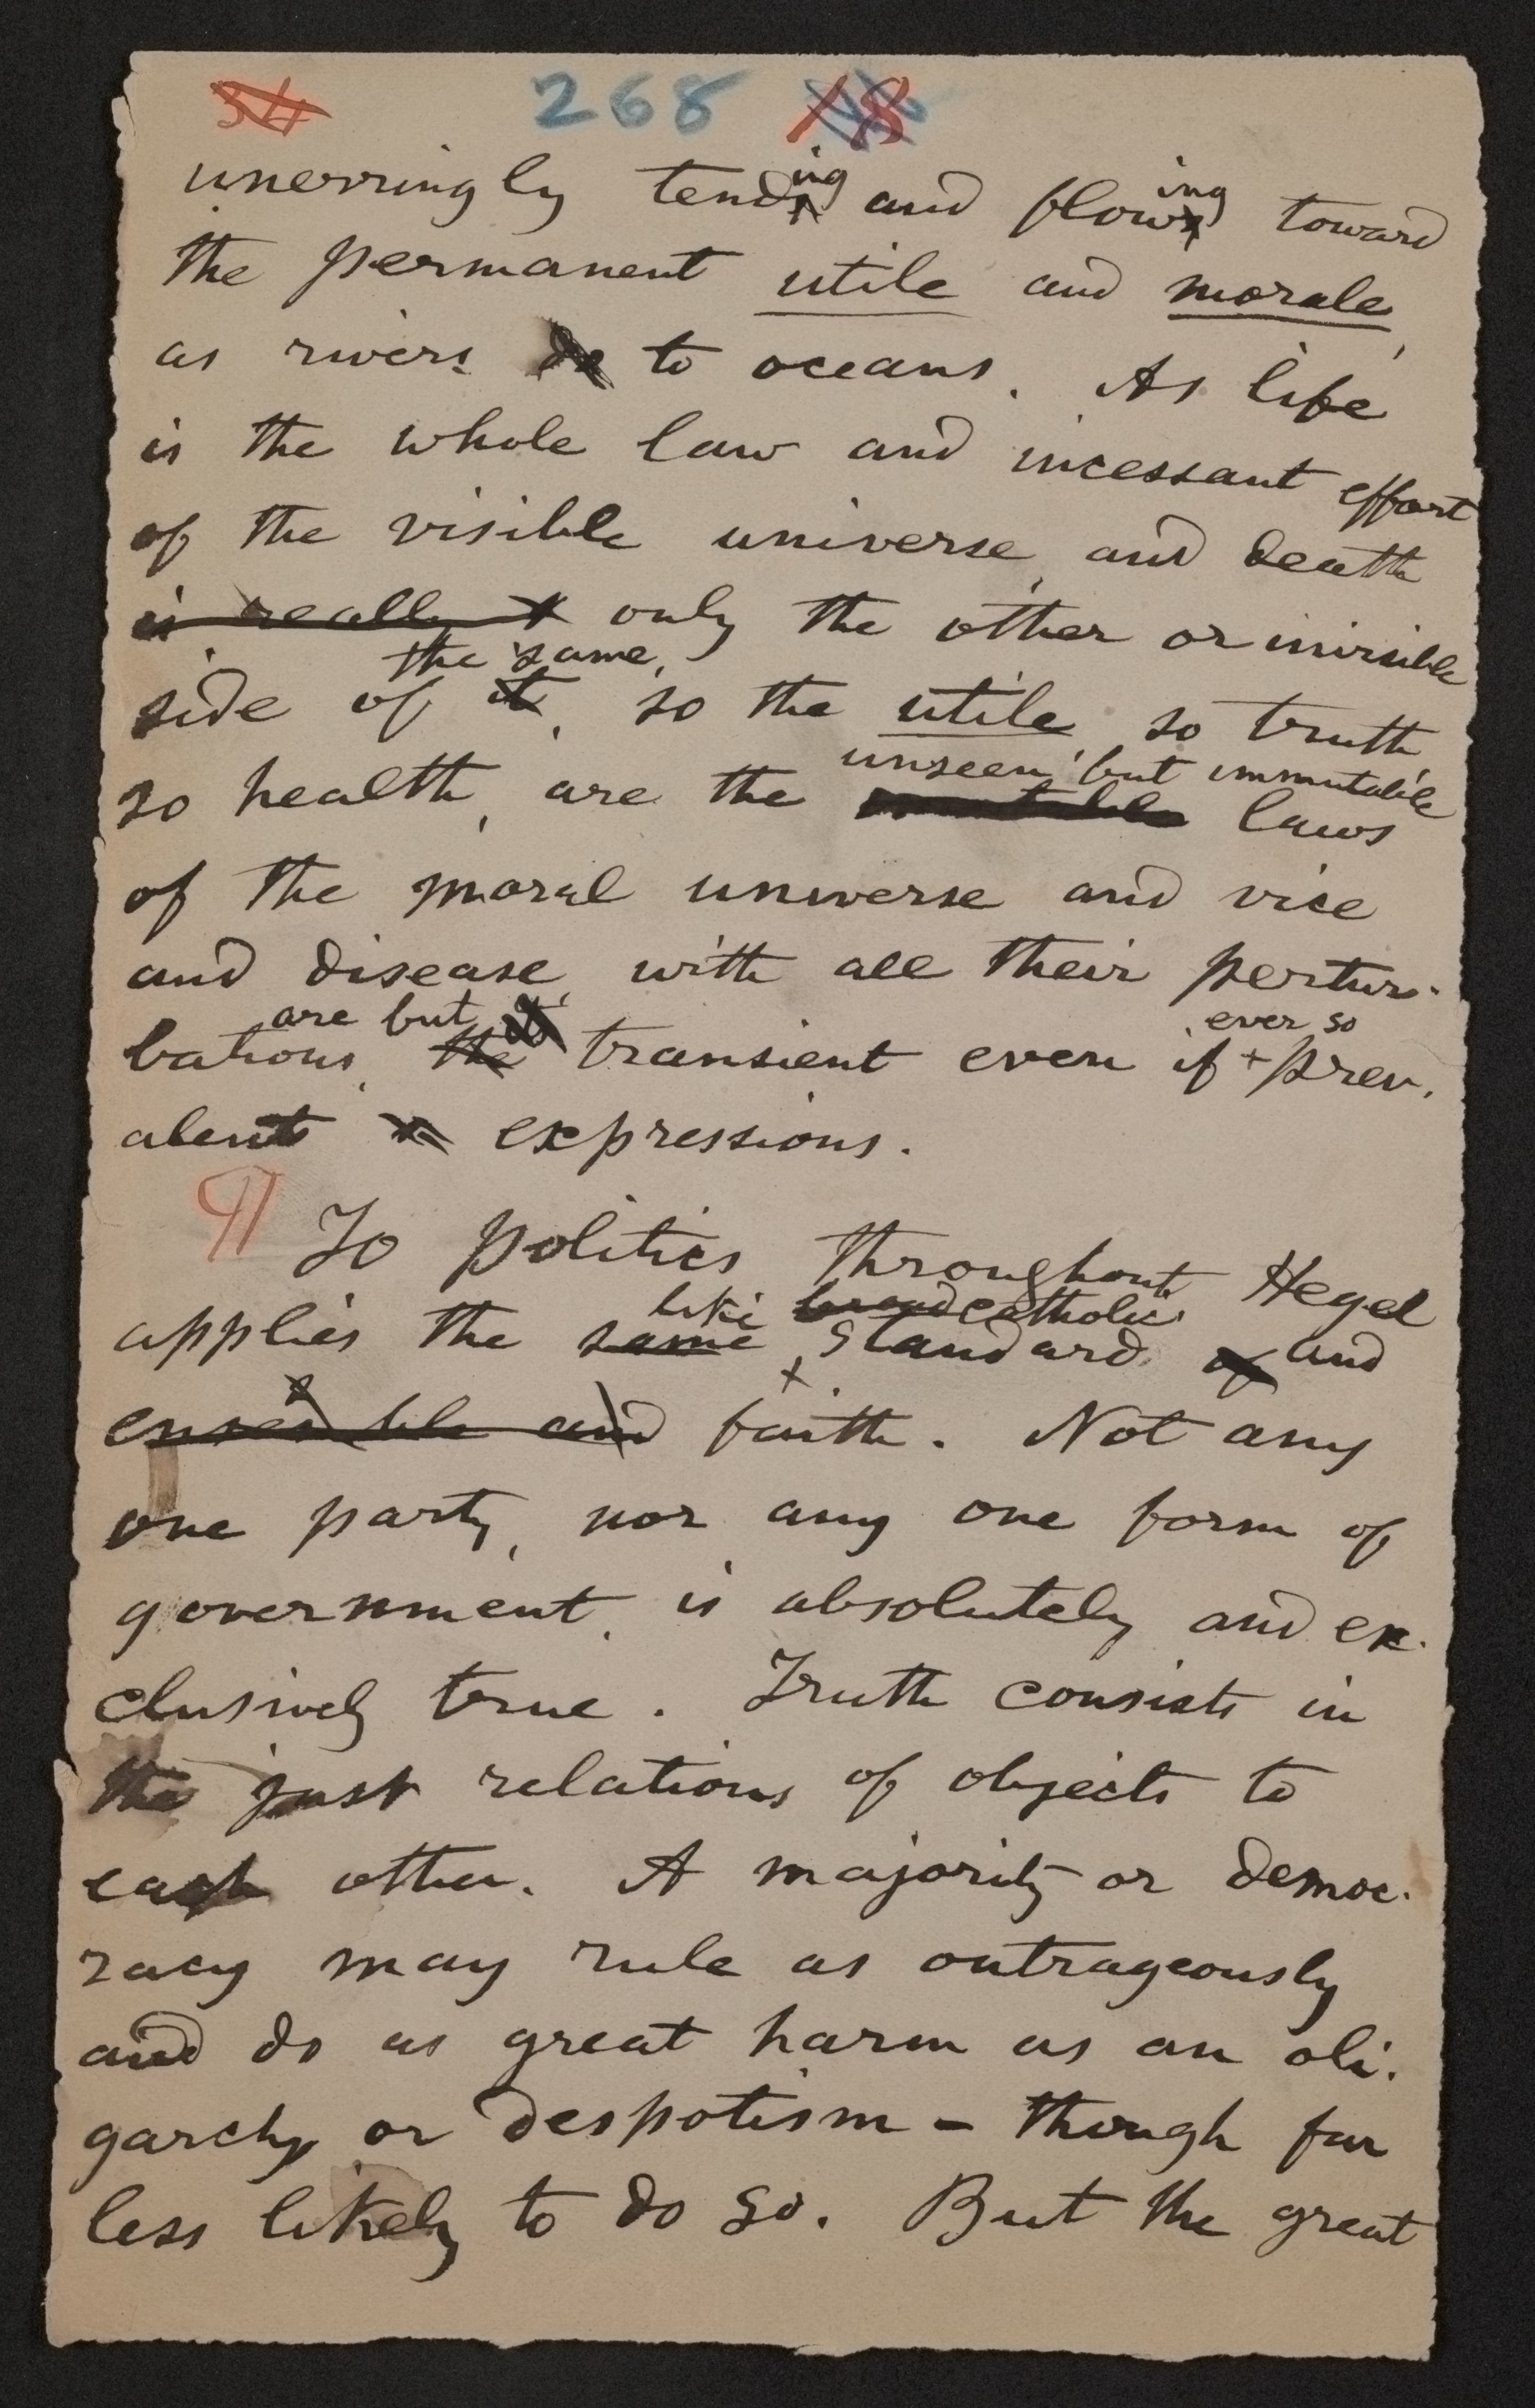 34 268 18
unerringly tending and flowing toward
the permanent utile and morale,
as rivers do to oceans. As life
is the whole law and incessant effort
of the visible universe, and death
is really only the other or invisible
the same,
side of it, so the utile, so truth
unseen but immutable
so health, are the immutable laws
of the moral universe and vice
and disease, with all their pertur-
are but ever so
bations, the transient even if prev-
alent expressions.
¶ To politics throughout Hegel
like broad catholic
applies the same standard of and
ensemble and faith. Not any
one party, nor any one form of
government, is absolutely and ex-
clusively true. Truth consists in
the just relations of objects to
each other. A majority or democ-
racy may rule as outrageously
and do as great harm as an oli-
garchy or despotism - though far
less likely to do so. But the great